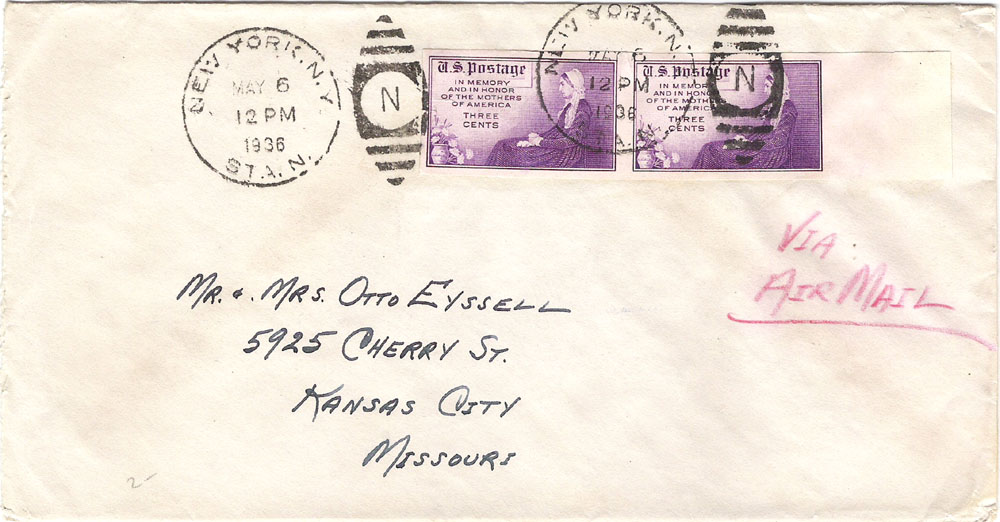 NEW YORK, N.Y.
MAY 6
12 PM
1936
STA. N.
N
U.S. Postage
IN MEMORY
AND IN HONOR
OF THE MOTHERS
OF AMERICA
THREE
CENTS
NEW YORK, N.
MAY 6
12 PM
1936
STA. N.
N
U.S. Postage
IN MEMORY
AND IN HONOR
OF THE MOTHERS
OF AMERICA
THREE
CENTS
VIA:
AIR MAIL
MR. & MRS. OTTO EYSSELL
5925 CHERRY ST.
KANSAS CITY
MISSOURI
2-